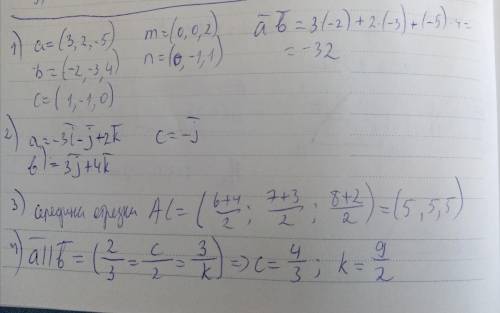 1) a=(3,2,-5) m=(0,0,2) a̅ b̅ = 3(-2)+2·(-3)+(-5)·4=
b=(-2,-3,4) n=(0,-1,1) = -32
c=(1,-1,0)
2) a=-3i̅-j̅+2k̅ c=-j̅
b)=3j̅+4k̅
3) середина отрезка AC=(6+4/2; 7+3/2; 8+2/2)=(5,5,5)
4) a̅||b̅=(2/3=c/2=3/k)=>c=4/3; k=9/2